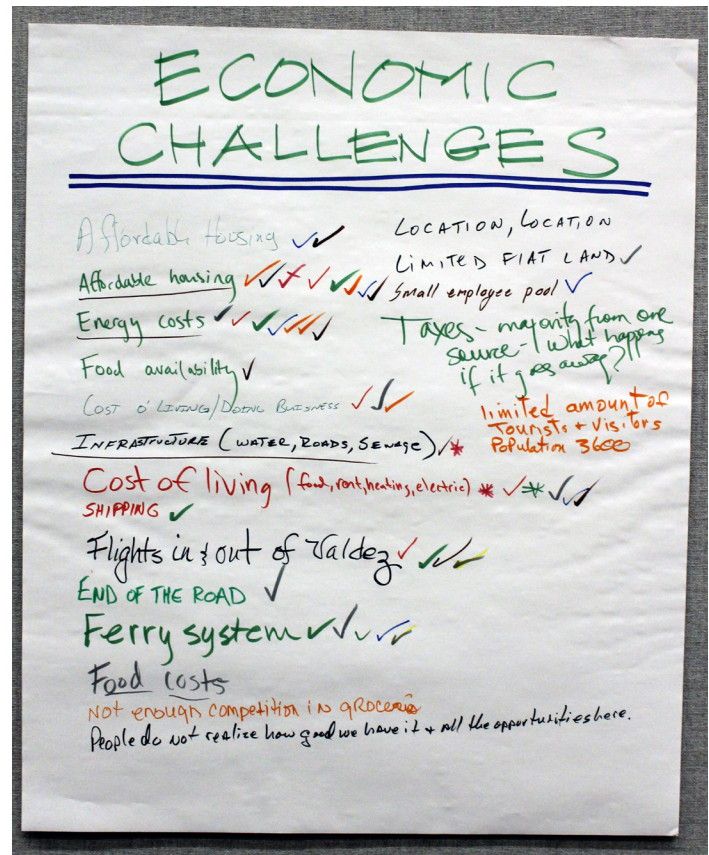 ECONOMIC
CHALLENGES
Affordable Housing ✓✓
Affordable housing ✓✓✓✓✓✓✓✓
Energy costs ✓✓✓✓✓✓✓
Food availability ✓
COST O' LIVING/DOING BUISNESS ✓✓✓
INFRASTRUCTURE (WATER, ROADS, SEWAGE) ✓*
Cost of living (food, rent, heating, electric) * ✓ * ✓✓
SHIPPING ✓
Flights in & out of Valdez ✓✓✓✓
END OF THE ROAD ✓
Ferry system ✓✓✓✓✓
Food costs
NOT enough competition in groceries
People do not realize how good we have it + all the opportunities here.
LOCATION, LOCATION
LIMITED FLAT LAND ✓
Small employee pool ✓
Taxes - majority from one
source - what happens
if it goes away?
limited amount of
Tourists + Visitors
Population 3600